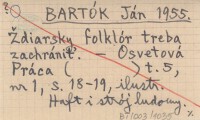 BARTÓK Ján 1955.
Ždiarsky folklór treba
zachrániť. – Osvetová
Práca ( ) t. 5,
nr 1, s. 18-19, ilustr.
Haft i strój ludowy.